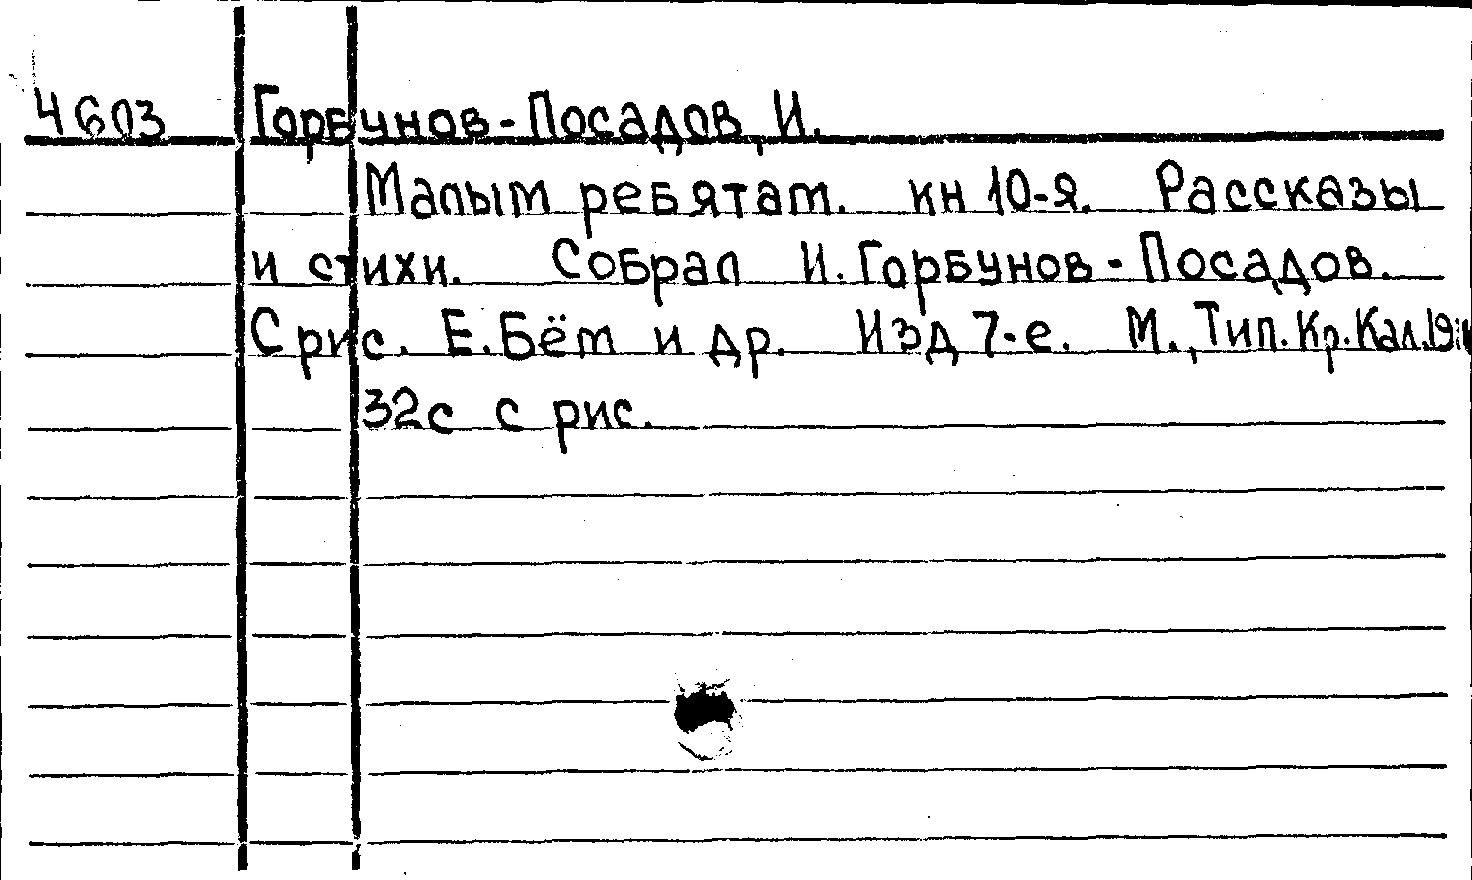 4603 Горбунов-Посадов, И.
Малым ребятам. кн 10-я. Рассказы
и стихи. Собрал И. Горбунов-Посадов.
С рис. Е. Бём и др. Изд 7-е. М., Тип. Кр. Кал.
32с с рис.